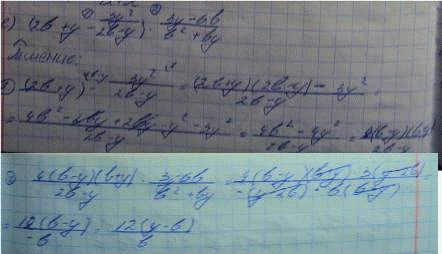 (2b + y - 3y²/2b-y) · 3y-6b/b²+by
① (2b+y) - 3y²/2b-y = (2b+y)(2b-y) - 3y²/2b-y =
= 4b² - 2by + 2by - y² - 3y²/2b-y = 4b² - 4y²/2b-y = 4(b-y)(b+y)/2b-y
② 4(b-y)(b+y)/2b-y · 3y-6b/b²+by = 4(b-y)(b+y) · 3(y-2b)/-(y-2b) · b(b+y) =
= 12(b-y)/-b = 12(y-b)/b